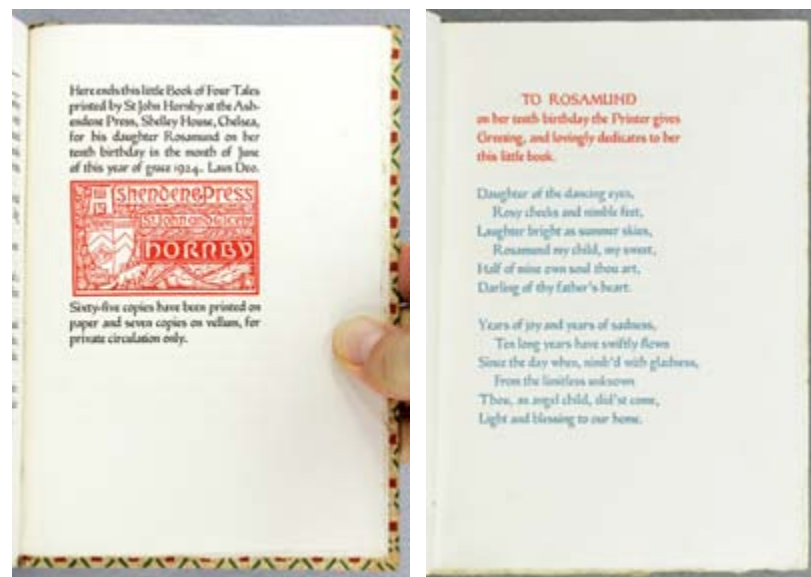 Here ends this little Book of Four Tales
printed by St John Hornby at the Ash-
endene Press, Shelley House, Chelsea,
for his daughter Rosamund on her
tenth birthday in the month of June
of this year of grace 1924. Laus Deo.
Ashendene Press
St John & Cicely
HORNBY
Sixty-five copies have been printed on
paper and seven copies on vellum, for
private circulation only.
TO ROSAMUND
on her tenth birthday the Printer gives
Greeting, and lovingly dedicates to her
this little book.
Daughter of the dancing eyes,
Rosy cheeks and nimble feet,
Laughter bright as summer skies,
Rosamund my child, my sweet,
Half of mine own soul thou art,
Darling of thy father's heart.
Years of joy and years of sadness,
Ten long years have swiftly flown
Since the day when, nimb'd with gladness,
From the limitless unknown
Thou, an angel child, did'st come,
Light and blessing to our home.